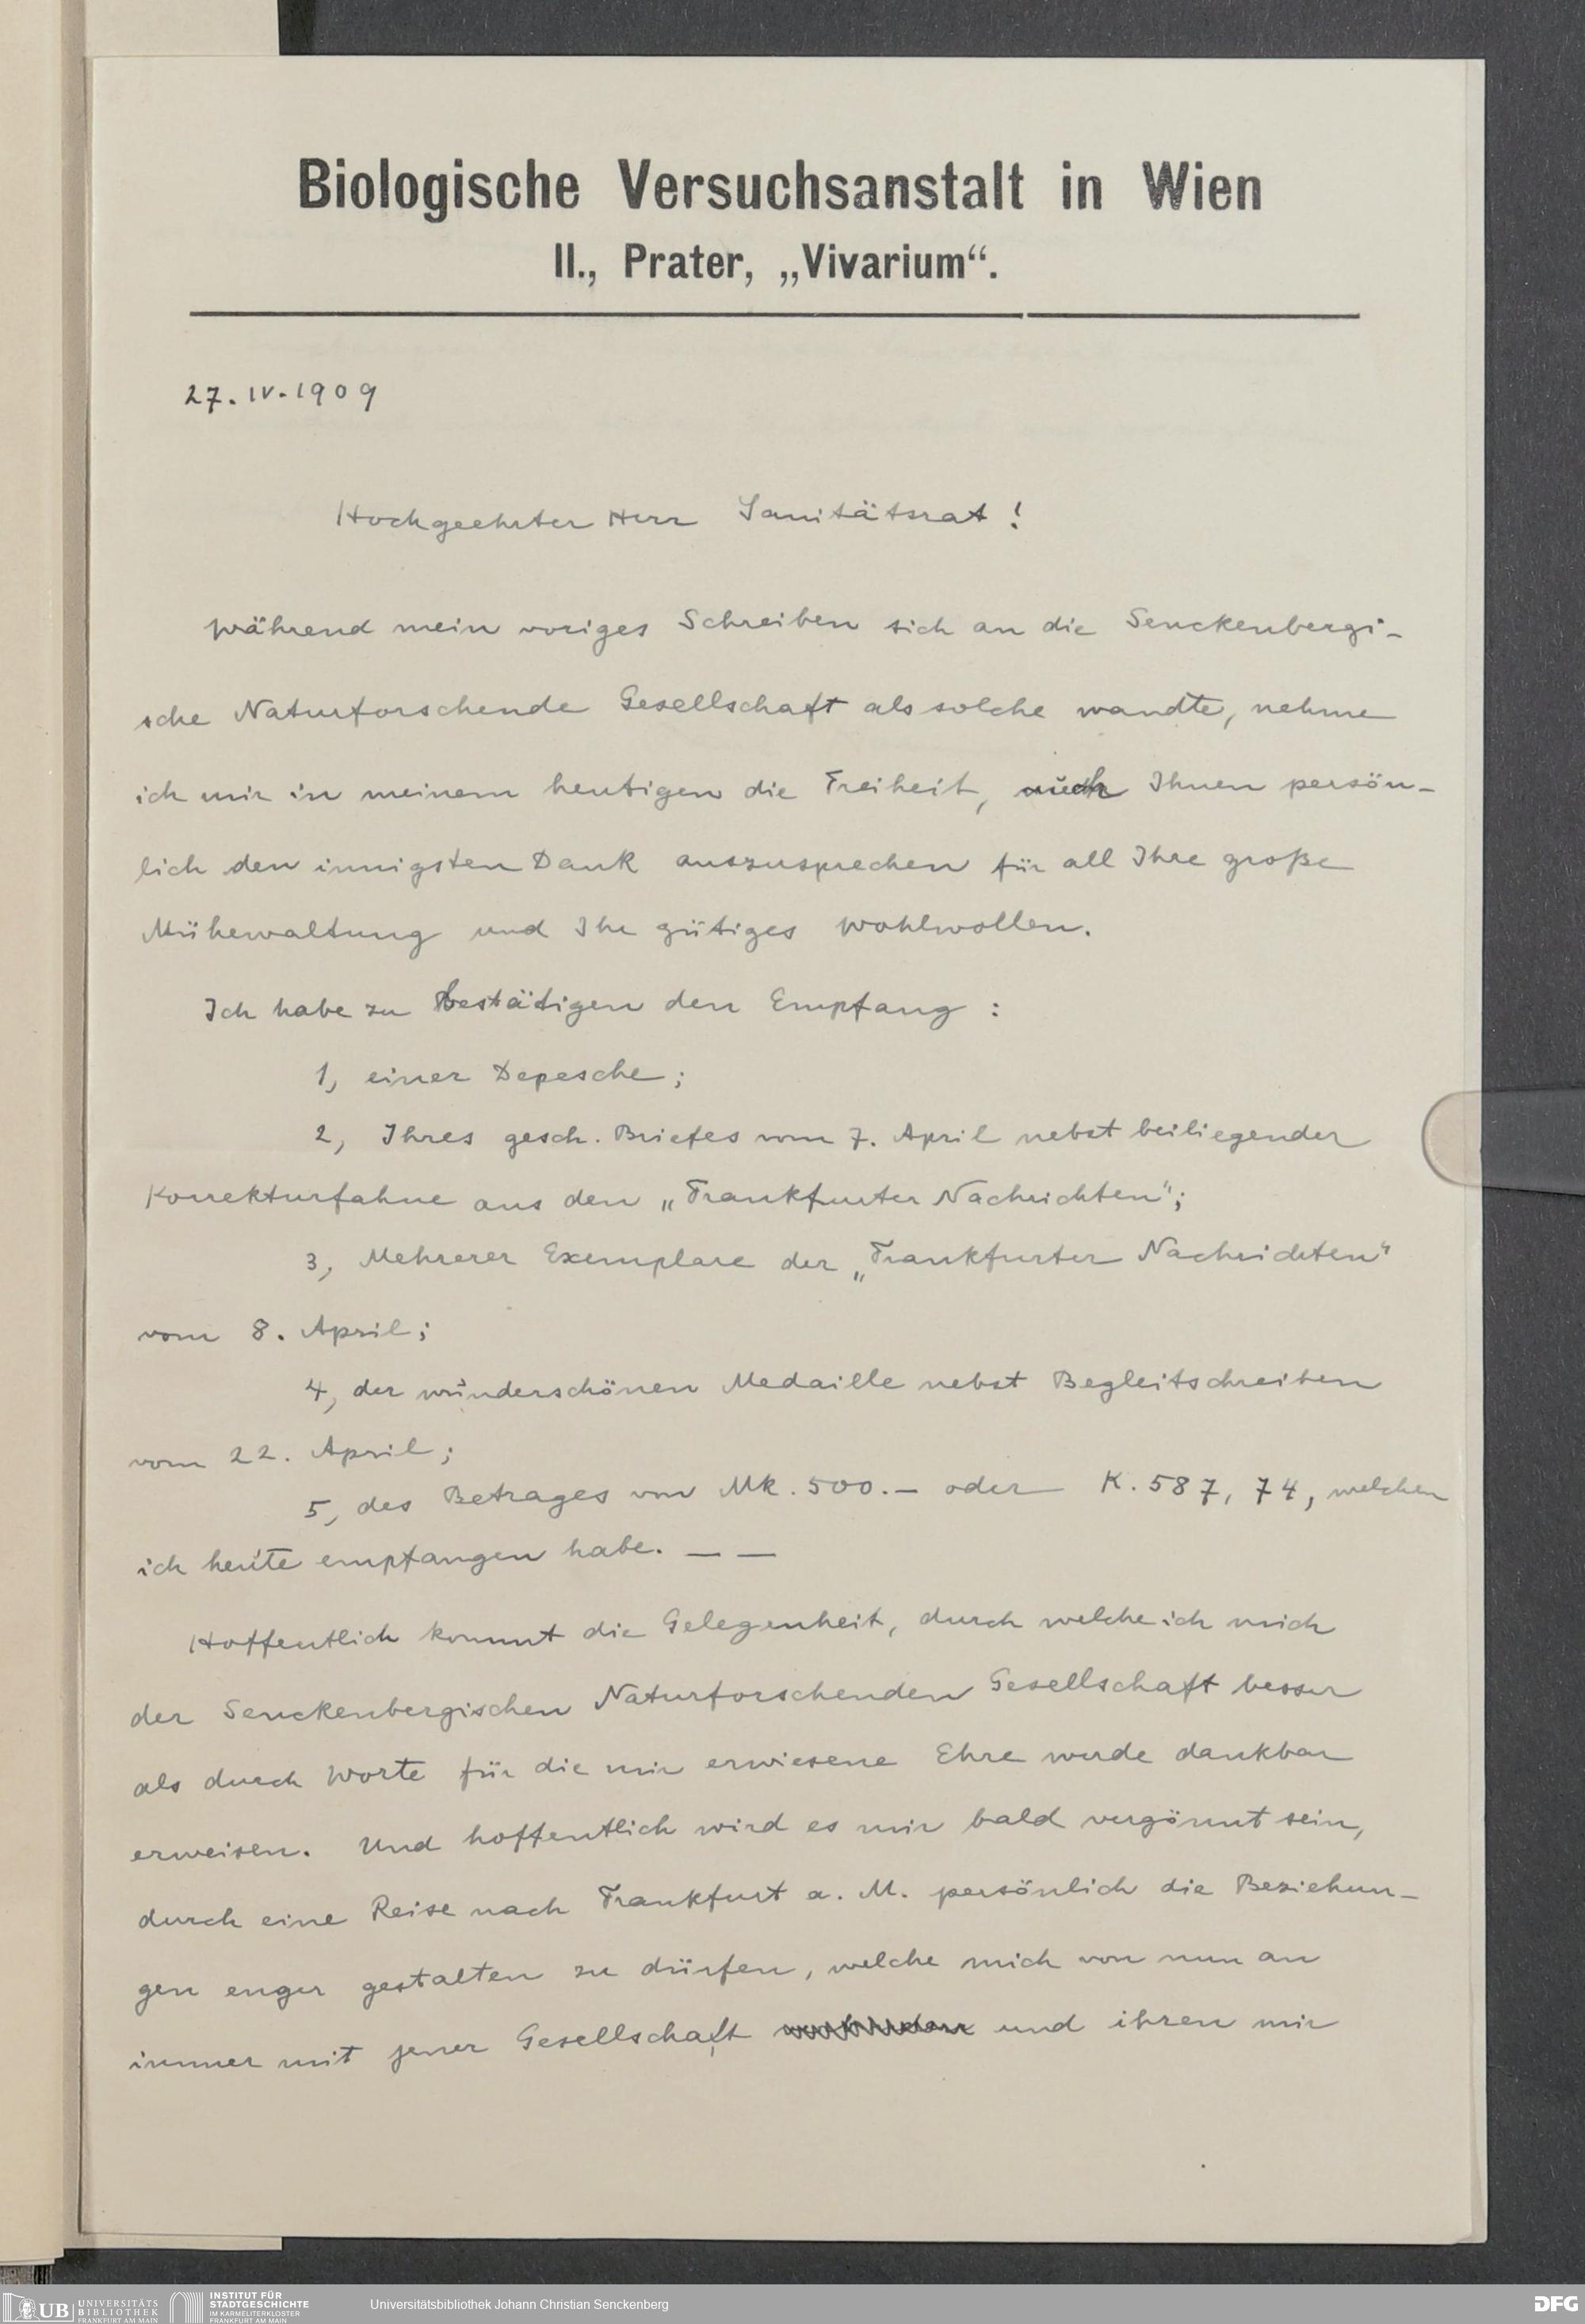 Biologische Versuchsanstalt in Wien
II., Prater, „Vivarium“.
27. IV. 1909
Hochgeehrter Herr Sanitätsrat!
Während mein voriges Schreiben sich an die Senckenbergi-
sche Naturforschende Gesellschaft als solche wandte, nehme
ich mir in meinem heutigen die Freiheit, auch Ihnen persön-
lich den innigsten Dank auszusprechen für all Ihre große
Mühewaltung und Ihr gütiges Wohlwollen.
Ich habe zu bestätigen den Empfang:
1, einer Depesche;
2, Ihres gesch. Briefes vom 7. April nebst beiliegender
Korrekturfahne aus den „Frankfurter Nachrichten“;
3, Mehrerer Exemplare der „Frankfurter Nachrichten“
vom 8. April;
4, der wunderschönen Medaille nebst Begleitschreiben
vom 22. April;
5, des Betrages von Mk. 500.— oder K. 587,74, welchen
ich heute empfangen habe. — —
Hoffentlich kommt die Gelegenheit, durch welche ich mich
der Senckenbergischen Naturforschenden Gesellschaft besser
als durch Worte für die mir erwiesene Ehre werde dankbar
erweisen. Und hoffentlich wird es mir bald vergönnt sein,
durch eine Reise nach Frankfurt a. M. persönlich die Beziehun-
gen enger gestalten zu dürfen, welche mich von nun an
immer mit jener Gesellschaft und ihren mir
UB UNIVERSITÄTS
BIBLIOTHEK
FRANKFURT AM MAIN
INSTITUT FÜR
STADTGESCHICHTE
IM KARMELITERKLOSTER
FRANKFURT AM MAIN
Universitätsbibliothek Johann Christian Senckenberg
DFG